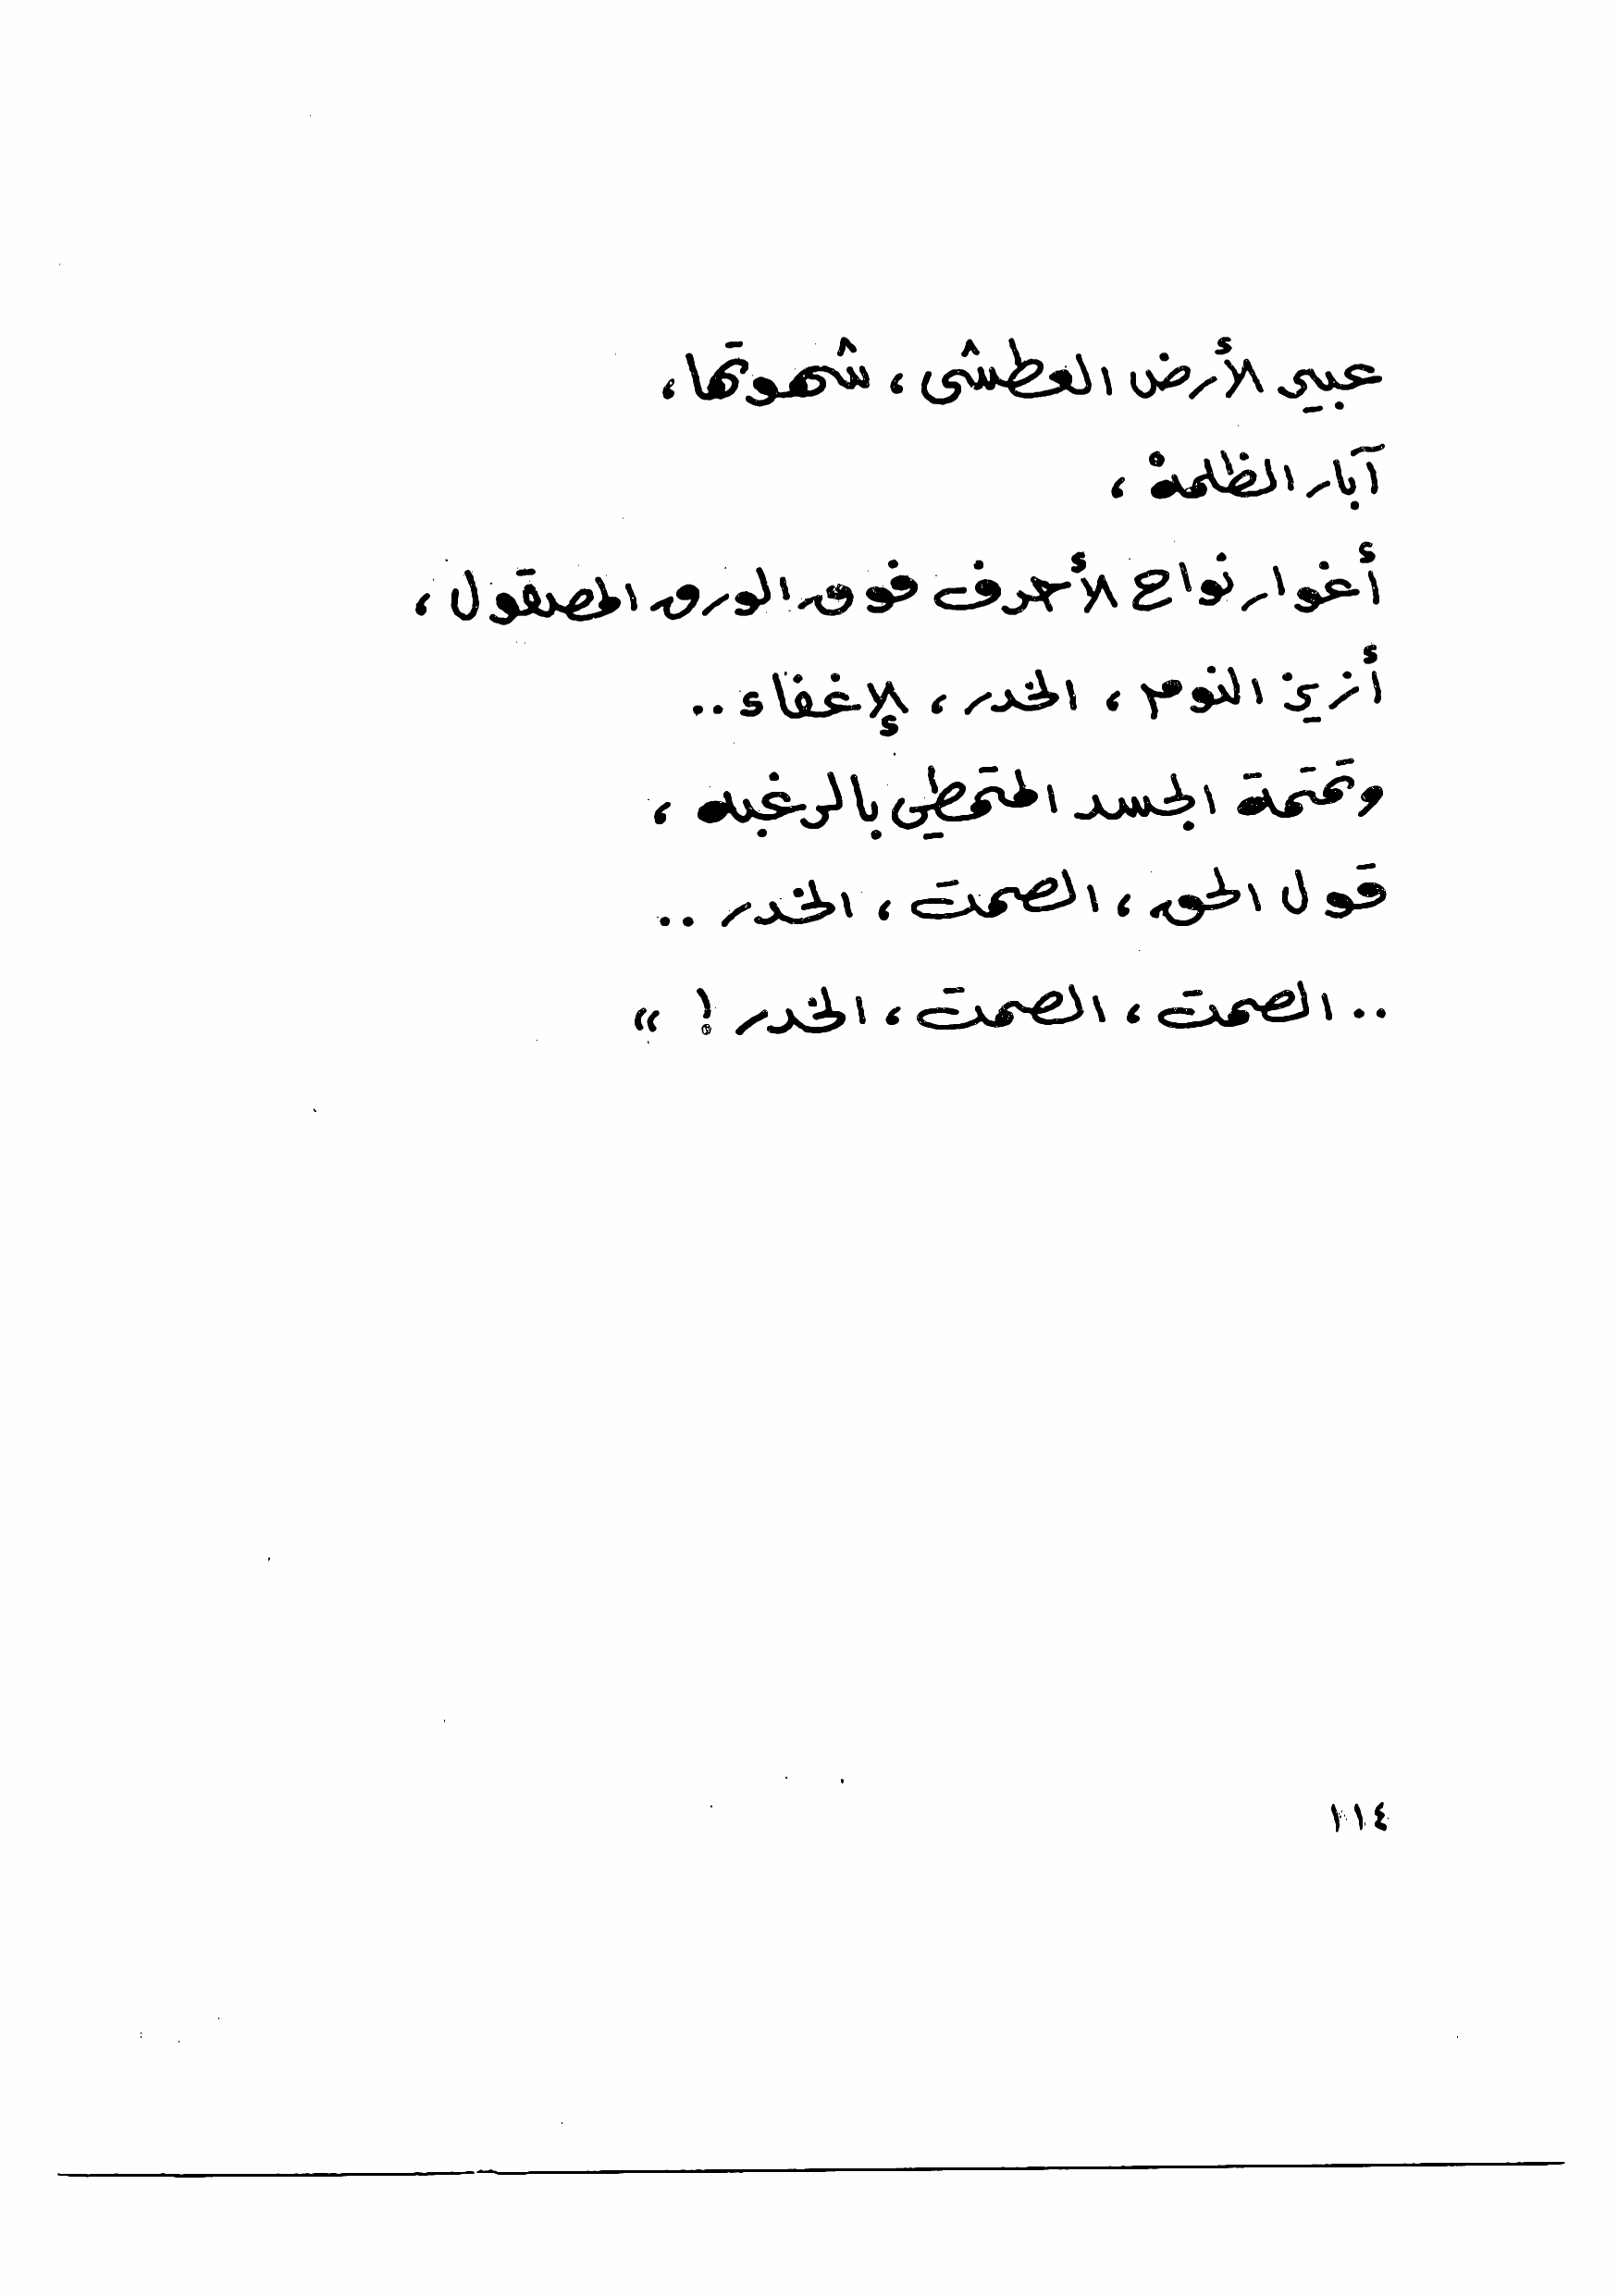 عبير الأرض العطشى ، شهوتها ،
آبار الظلمة ،
أغوار نواح الأحرف فوق الورق المصقول ،
أزيز النوم ، الخدر ، الإغفاء ..
وتمتمة الجسد المتمطي بالرغبه ،
قول الحق ، الصمت ، الخدر ..
.. الصمت ، الصمت ، الخدر ! »
١١٤